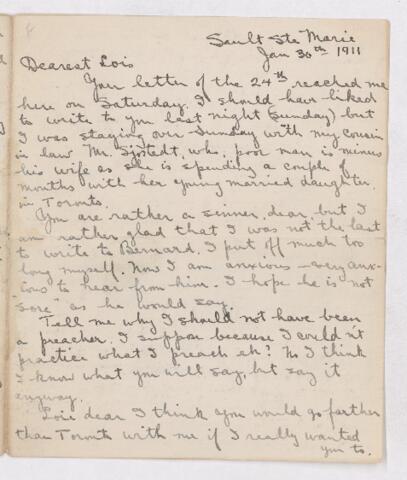 Sault Ste Marie
Jan 30th 1911
Dearest Lois
Your letter of the 24th reached me
here on Saturday. I should have liked
to write to you last night (Sunday) but
I was staying over Sunday with my cousin
in law Mr. Sjostedt, who, poor man is minus
his wife as she is spending a couple of
months with her young married daughter
in Toronto.
You are rather a sinner, dear, but I
am rather glad that I was not the last
to write to Bernard. I put off much too
long myself. Now I am anxious – very anx-
ious to hear from him. I hope he is not
"sore" as he would say.
Tell me why I should not have been
a preacher. I suppose because I couldn't
practice what I preach eh? No I think
I know what you will say, but say it
anyway.
Lois dear I think you would go farther
than Toronto with me if I really wanted
you to.